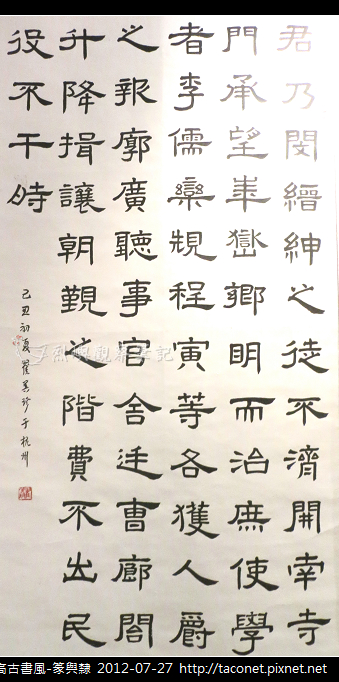 君乃閔縉紳之徒不濟開南寺
門承望華嶽鄉明而治庶使學
者李儒欒規程寅等各獲人爵
之報廓廣聽事官舍廷曹廊閣
升降揖讓朝覲之階費不出民
役不干時
己丑初夏翟美珍于杭州
高古書風-篆與隸 2012-07-27 http://taconet.pixnet.net